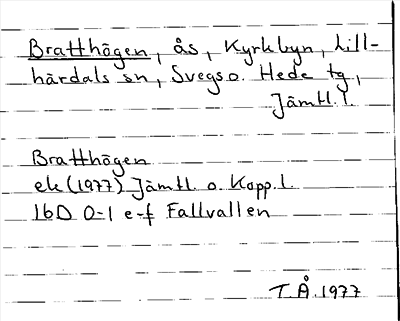 Bratthögen, ås, Kyrkbyn, Lill-
härdals sn, Svegs o. Hede tg,
Jämtl. l.
Bratthögen
ek (1977) Jämtl. o. Kopp. l.
16D 0-1 e-f Fallvallen
T.Å. 1977